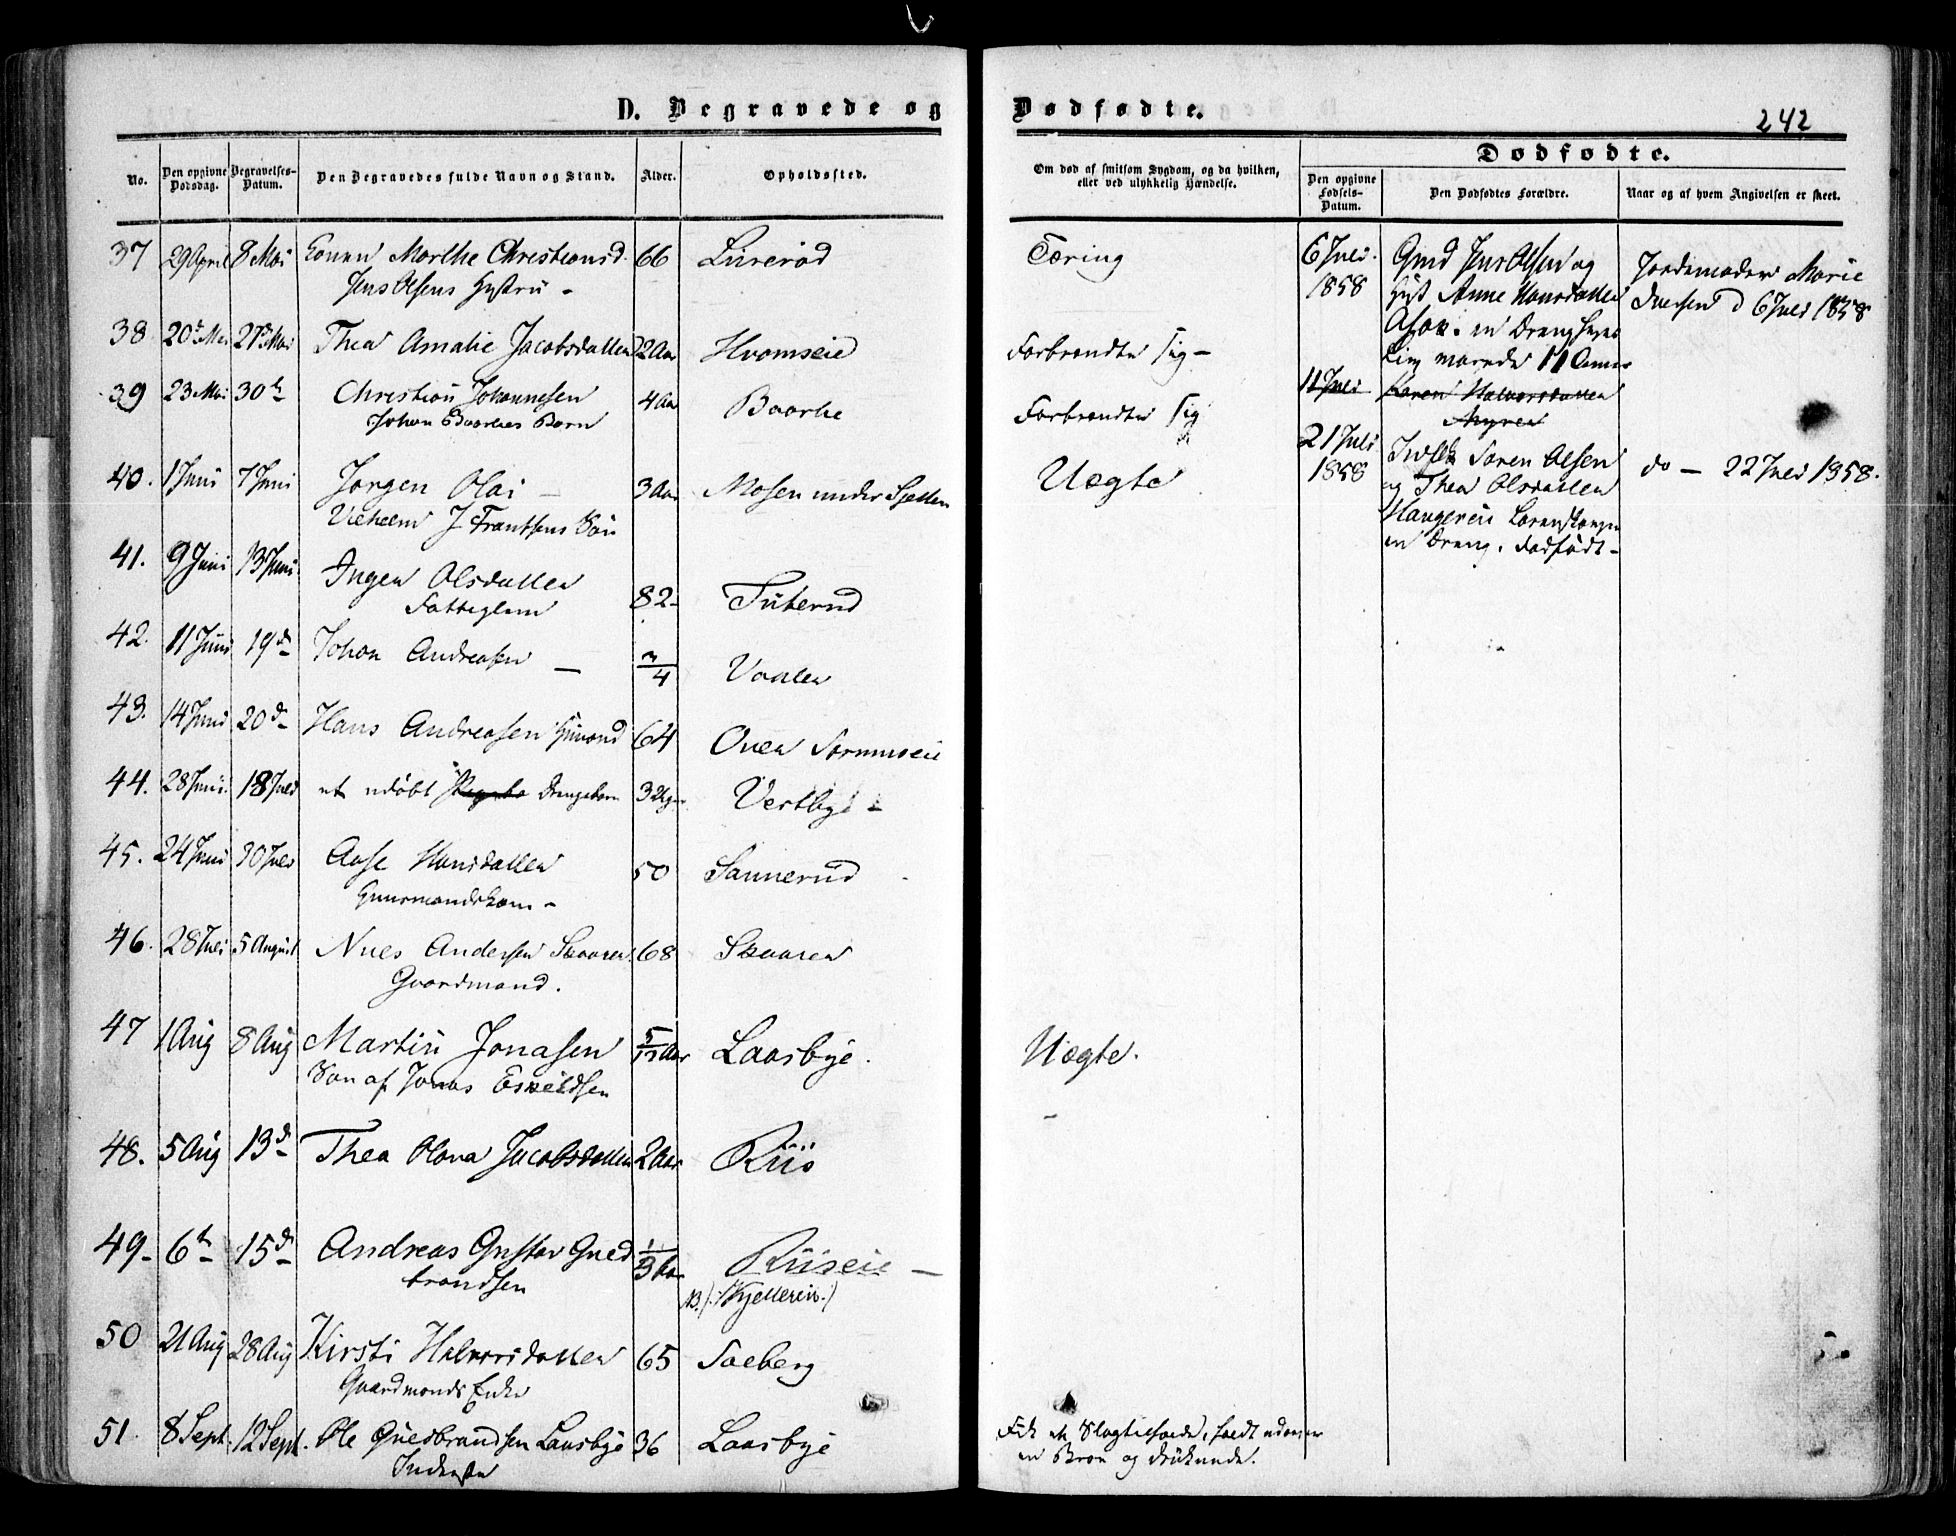 D. Begravede og Dødfødte.
242
No.
Den opgivne Dødsdag.
Begravelses-Datum.
Den Begravedes fulde Navn og Stand.
Alder.
Opholdssted.
Om død af smitsom Sygdom, og da hvilken,
eller ved ulykkelig Hændelse.
Dødfødte.
Den opgivne Fødsels-Datum.
Den Dødfødtes Forældre.
Naar og af hvem Angivelsen er skeet.
37 29 April 8 Mai Konen Marthe Christiansd. 66 Lurerød Tæring
Jens Olsens Hustru -
38 20de Mai 27de Mai Thea Amalie Jacobsdatter 2 Aar Hvamseie Forbrændte sig -
39 23 Mai 30te Christian Johannesen 4 Aar Baarlie Forbrændte sig
Johan Baarlies Barn
40. 1 Juni 7 Juni Jørgen Olai - 3 Aar Mosen under Sjetten Uægte
Vilhelm J Frantsens Søn
41. 9 Juni 13 Juni Inger Olsdatter 82 - Tuterud
Fattiglem
42. 11 Juni 19de Johan Andreasen - 3/4 Vaaler
43. 14 Juni 20de Hans Andreasen Huusmand 64 Ovea
44. 28 Juni 18 Juli et udøbt Drengebarn 3 Uger Vestbye -
45. 24 Juni 30 Juli Aase Hansdatter 50 Sannerud
Huusmandskone -
46. 28 Juli 5 August Niels Andersen Skaaren 68 Skaaren
Gaardmand.
47 1 Aug 8 Aug Martin Jonasen 5/12 Aar Laasbye. Uægte.
Søn af Jonas Eskildsen
48. 5 Aug 13de Thea Olava Jacobsdatter 2 Aar Riis
49 - 6te 15de Andreas Gustav Guld- 1/3 Aar Riiseie -
brandsen NB. (: Kjellerein :)
50 21 Aug 28 Aug Kirsti Halvorsdatter 65 Solberg
Gaardmands Enke
51. 8 Sept. 12 Sept. Ole Gulbrandsen Laasbye 36 Laasbye Fik et Slagtilfælde, faldt udover
Inderst en Bro og druknede.
6 Juli 1858
Gmd Jens Olsen og
Hust Anne Hansdatter
en Dreng
Jordemoder Marie
Iversen d 6 Juli 1858
11 Juli
Karen Halvorsdatter
Myrer
21 Juli 1858
Inds. Søren Olsen
og Thea Olsdatter
Haugerin Lørenskogen
en Dreng, dødfødt -
do - 22 Juli 1858.